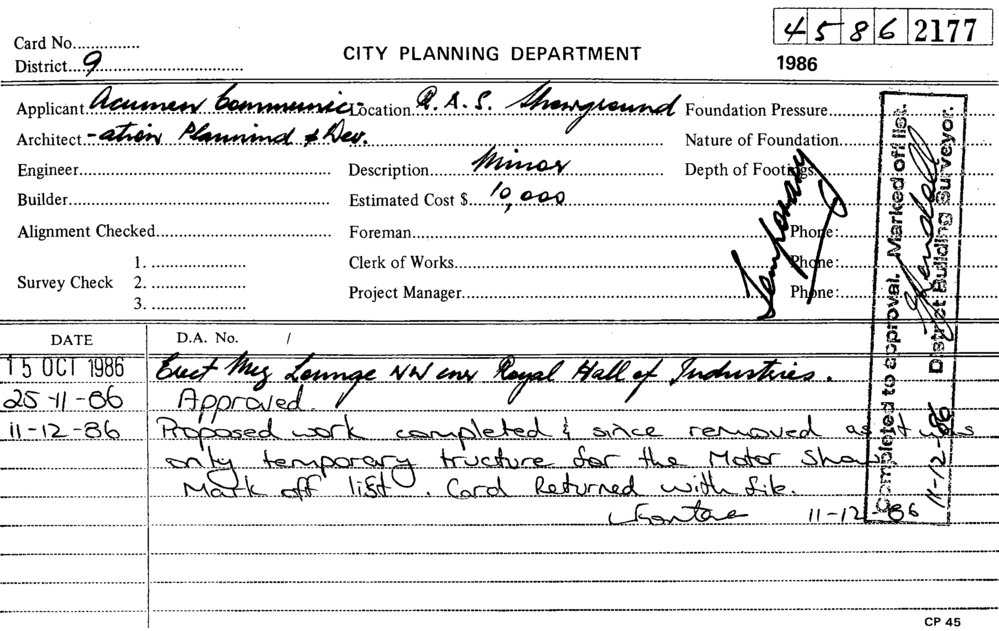 4586 2177
Card No..............
CITY PLANNING DEPARTMENT
District....9................................
1986
Applicant Acumen Communic- Location R.A.S. Showground Foundation Pressure
Architect -ation Plannind & Dev. Nature of Foundation
Engineer Description Minor Depth of Footings
Builder Estimated Cost $ 10,000
Temporary
Alignment Checked Foreman Phone:
1. Clerk of Works Phone:
Survey Check 2.
Project Manager Phone:
3.
Completed to approval. Marked off list.
11-12-86 District Building Surveyor.
DATE D.A. No. /
15 OCT 1986 Erect Mez Lounge NW cnr Royal Hall of Industries.
25-11-86 Approved.
11-12-86 Proposed work completed & since removed as it was
only temporary tructure for the Motor Show
Mark off list. Card Returned with file.
11-12-86
CP 45